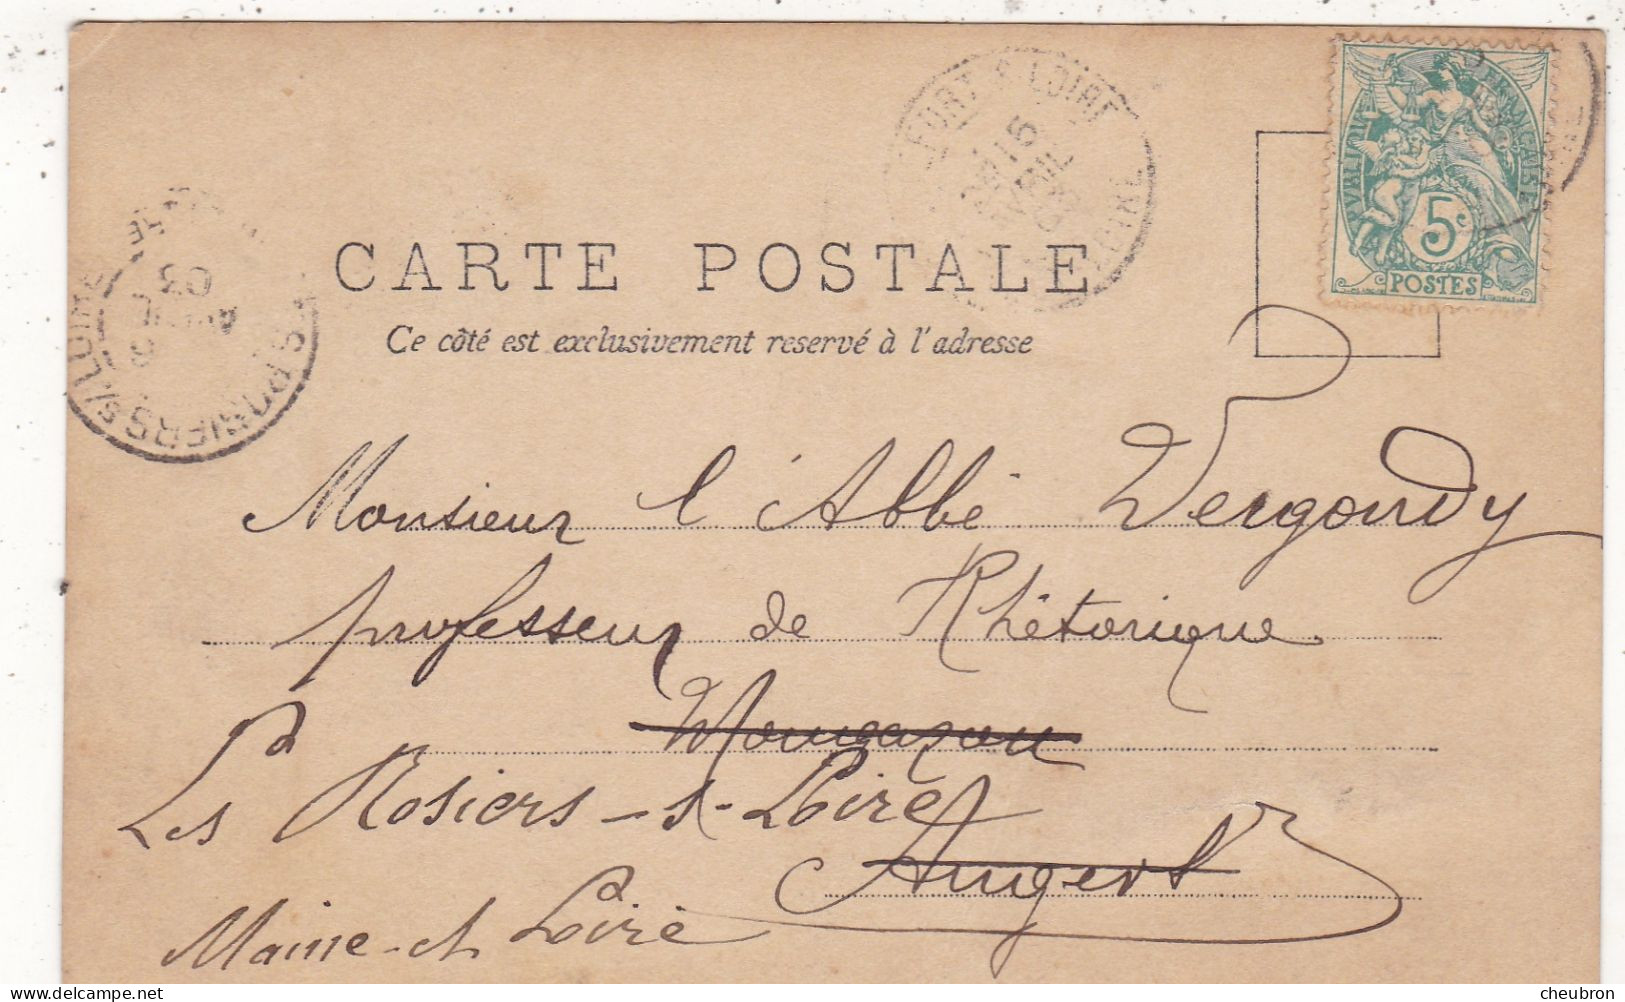 RÉPUBLIQUE FRANÇAISE
5c
POSTES
LOIRE
15
AVRIL
03
ROSIERS S/ LOIRE
03
CARTE POSTALE
Ce côté est exclusivement reservé à l'adresse
Monsieur l'Abbé Vergondy
professeur de Rhétorique
Mongazon
Les Rosiers-s-Loire
Angers
Maine-et Loire
© cheubron - delcampe.net